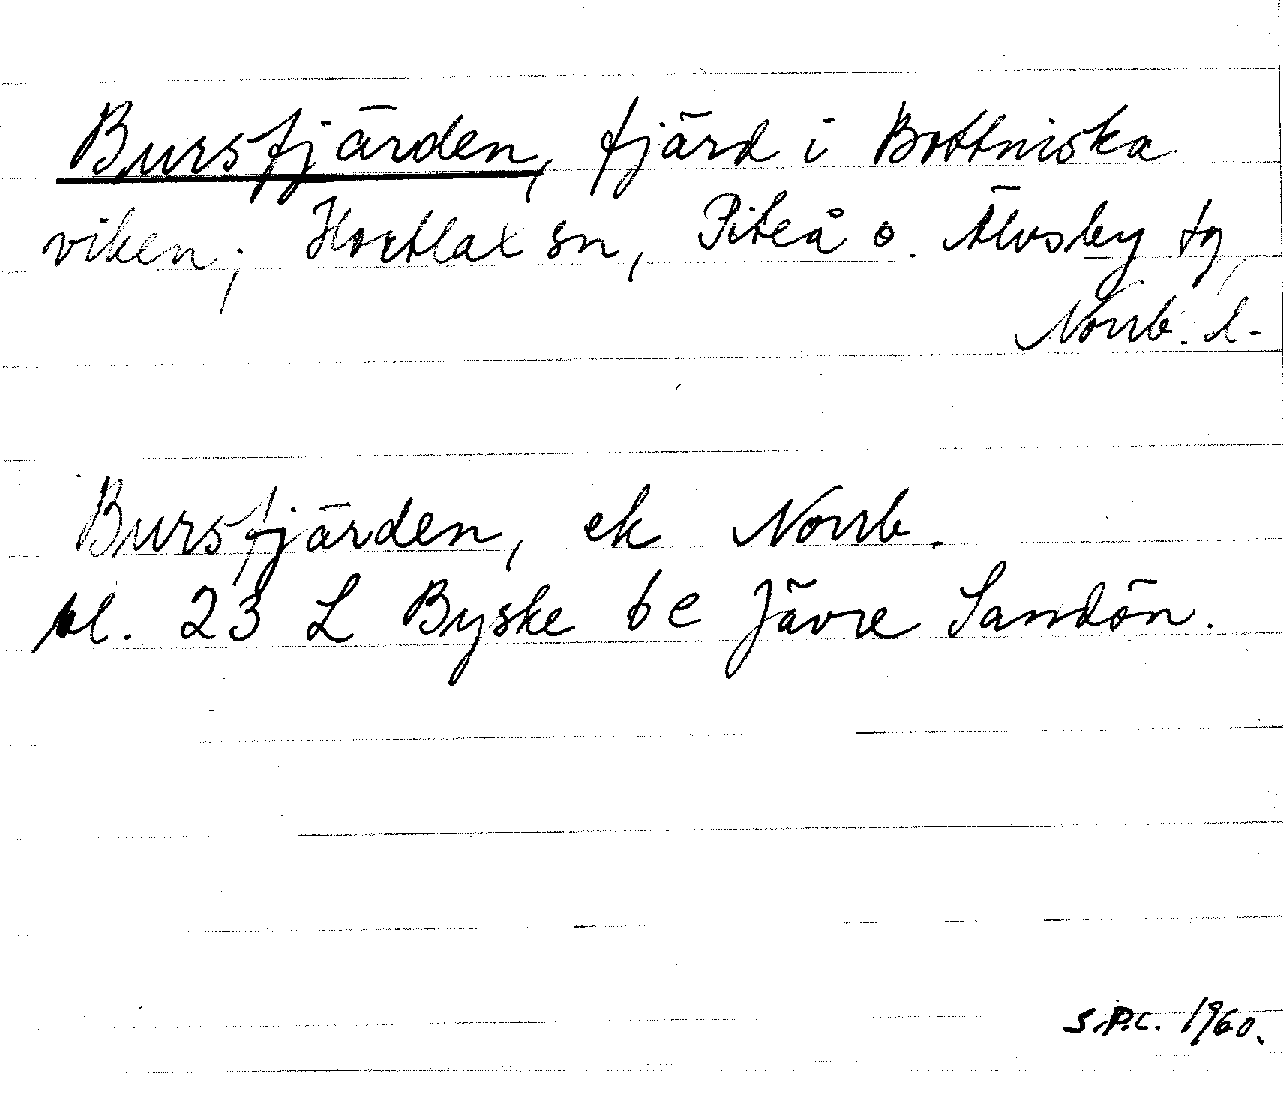 Bursfjärden, fjärd i Bottniska
viken; Hortlax sn, Piteå o. Älvsby tg,
Norrb. l.
Bursfjärden, ek Norrb.
bl. 23 L Byske 6e Jävre Sandön.
S.P.C. 1960.